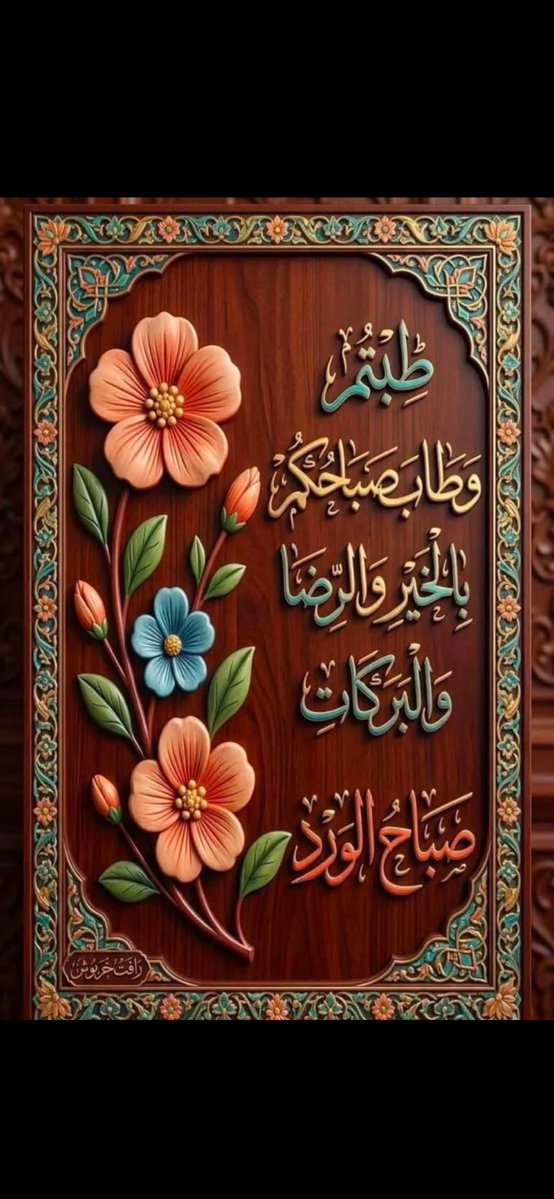 طِبتُم
وَطَابَ صَبَاحُكُم
بِالخَيرِ وَالرِّضَا
وَالبَرَكَاتِ
صَبَاحُ الوَرد
رَافَت خَربُوش